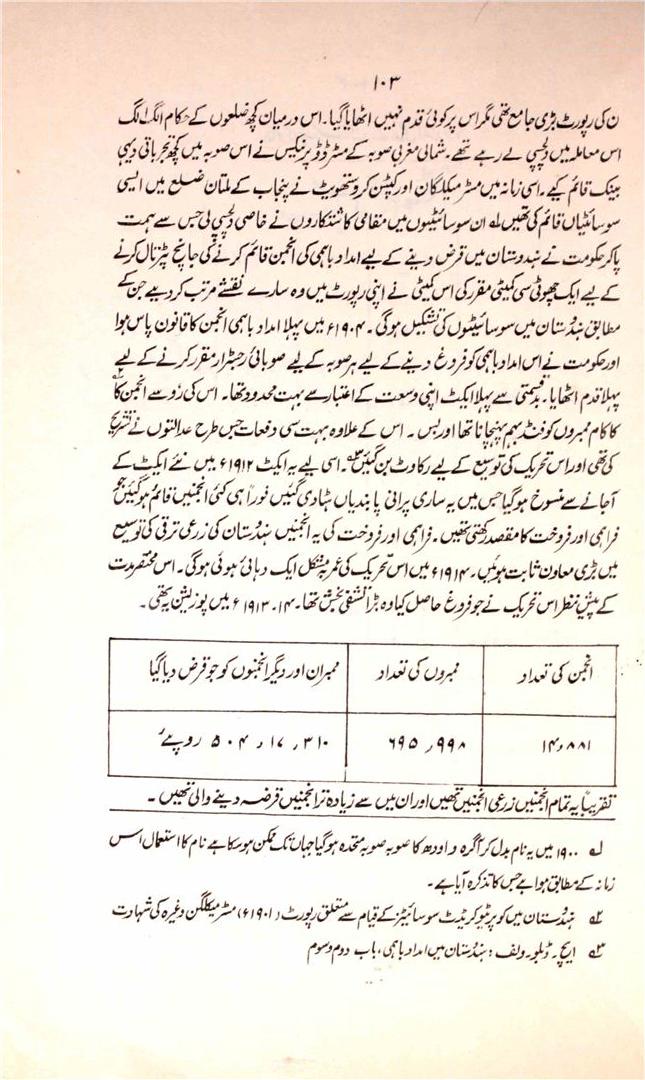 ۱۰۳
ن کی رپورٹ بڑی جامع تھی مگر اس پر کوئی قدم نہیں اٹھایا گیا۔ اس درمیان کچھ ضلعوں کے حکام الگ الگ
اس معاملہ میں دلچسپی لے رہے تھے۔ شمالی مغربی صوبہ کے مسٹر ڈوپرنیکس نے اس صوبہ میں کچھ تجرباتی دیہی
بینک قائم کیے۔ اسی زمانہ میں مسٹر میکلیگان اور کیپٹن کروستھویٹ نے پنجاب کے ملتان ضلع میں ایسی
سوسائٹیاں قائم کی تھیں لہ ان سوسائٹیوں میں مقامی کاشتکاروں نے خاصی دلچسپی لی جس سے ہمت
پاکر حکومت نے ہندوستان میں قرض دینے کے لیے امداد باہمی کی انجمن قائم کرنے کی جانچ پڑتال کرنے
کے لیے ایک چھوٹی سی کمیٹی مقرر کی اس کمیٹی نے اپنی رپورٹ میں وہ سارے نقشے مرتب کر دیے جن کے
مطابق ہندوستان میں سوسائیٹوں کی تشکیل ہوگی۔ ۱۹۰۴ء میں پہلا امداد باہمی انجمن کا قانون پاس ہوا
اور حکومت نے اس امداد باہمی کو فروغ دینے کے لیے ہر صوبہ کے لیے صوبائی رجسٹرار مقرر کرنے کے لیے
پہلا قدم اٹھایا۔ بدقسمتی سے پہلا ایکٹ اپنی وسعت کے اعتبار سے بہت محدود تھا۔ اس کی رو سے انجمن کا
کا کام ممبروں کو فنڈ بہم پہنچانا تھا اور بس۔ اس کے علاوہ بہت سی دفعات جس طرح عدالتوں نے تشریح
کی تھی اور اس تحریک کی توسیع کے لیے رکاوٹ بن گئیں۔ اسی لیے یہ ایکٹ ۱۹۱۲ء میں نئے ایکٹ کے
آجانے سے منسوخ ہوگیا جس میں یہ ساری پرانی پابندیاں ہٹادی گئیں فوراً ہی کئی انجمنیں قائم ہوگئیں جو
فراہمی اور فروخت کا مقصد رکھتی تھیں۔ فراہمی اور فروخت کی یہ انجمنیں ہندوستان کی زرعی ترقی کی توسیع
میں بڑی معاون ثابت ہوئیں۔ ۱۹۱۴ء میں اس تحریک کی عمر بمشکل ایک دہائی ہوئی ہوگی۔ اس مختصر مدت
کے پیش نظر اس تحریک نے جو فروغ حاصل کیا وہ بڑا تشفی بخش تھا۔ ۱۴-۱۹۱۳ء میں پوزیشن یہ تھی۔
انجمن کی تعداد ممبروں کی تعداد ممبران اور دیگر انجمنوں کو جو قرض دیا گیا
۱۴،۸۸۱ ۶۹۵،۹۹۸ ۵۰۴،۱۷،۳۱۰ روپے
تقریباً یہ تمام انجمنیں زرعی انجمنیں تھیں اور ان میں سے زیادہ تر انجمنیں قرضہ دینے والی تھیں۔
لہ ۱۹۰۰ میں یہ نام بدل کر آگرہ و اودھ کا صوبہ صوبہ متحدہ ہوگیا جہاں تک ممکن ہوسکا ہے نام کا استعمال اس
زمانہ کے مطابق ہوا ہے جس کا تذکرہ آیا ہے۔
۲ہ ہندوستان میں کوپرٹیو کریڈٹ سوسائیٹز کے قیام سے متعلق رپورٹ (۱۹۰۱ء) مسٹر میکلگن وغیرہ کی شہادت
۳ہ ایچ۔ ڈبلو۔ ولف : ہندوستان میں امداد باہمی، باب دوم و سوم